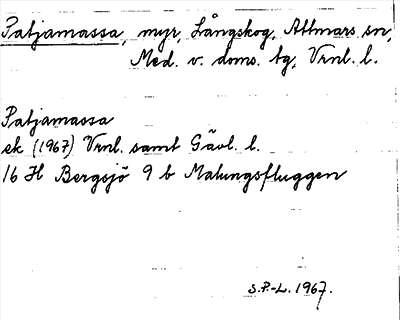 Patjamassa, myr, Långskog, Attmars sn,
Med. v. doms. tg, Vrnl. l.
Patjamassa
ek (1967) Vrnl. samt Gävl. l.
16 H Bergsjö 9 b Malungsfluggen
S.P.-L. 1967.